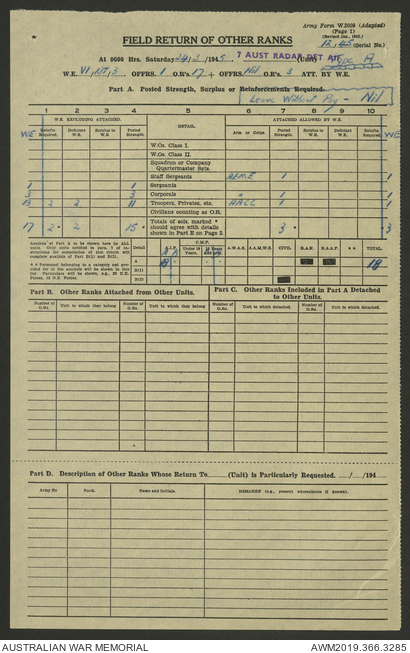 Army Form W.3009 (Adapted)
(Page 1)
(Revised Jan., 1942.)
FIELD RETURN OF OTHER RANKS
12/45 (Serial No.)
At 0600 Hrs. Saturday 24/3/1945. 7 AUST RADAR DET AIF (Unit) Type A
W.E. VI/ /3 OFFRS. 1 O.R's. 17 + OFFRS. Nil O.R's. 3 ATT. BY W.E.
Part A. Posted Strength, Surplus or Reinforcements Required.
Leave Without Pay - Nil
1 2 3 4 5 6 7 8 9 10
W.E. EXCLUDING ATTACHED. ATTACHED ALLOWED BY W.E.
WE Reinfts. Required. Deficient W.E. Surplus to W.E. Posted Strength. DETAIL. Arm or Corps. Posted Strength. Deficient W.E. Surplus to W.E. Reinfts. Required. WE
W.Os. Class I.
W.Os. Class II.
Squadron or Company
Quartermaster Sgts.
Staff Sergeants AEME 1 1
1 1 Sergeants
3 3 Corporals " 1 1
13 2 2 11 Troopers, Privates, etc. AACC 1 1
Civilians counting as O.R.
17 2 * 2 15 * Totals of cols. marked *
should agree with details
shown in Part E on Page 2. 3 * 3
Analysis of Part A to be shown here by ALL
Units.
Detail A.I.F. C.M.F. Under 19 Years. A.W.A.S. A.A.M.W.S. CIVIL R.A.N. R.A.A.F. * * TOTAL.
A 18 18
B(1)
B(2)
Part B. Other Ranks Attached from Other Units.
Part C. Other Ranks Included in Part A Detached
to Other Units.
Number of O.Rs. Unit to which they belong Number of O.Rs. Unit to which they belong Number of O.Rs. Unit to which detached. Number of O.Rs. Unit to which detached.
Part D. Description of Other Ranks Whose Return To (Unit) is Particularly Requested. / /194
Army No Rank. Name and Initials. REMARKS (e.g., present whereabouts if known).
AUSTRALIAN WAR MEMORIAL AWM2019.366.3285